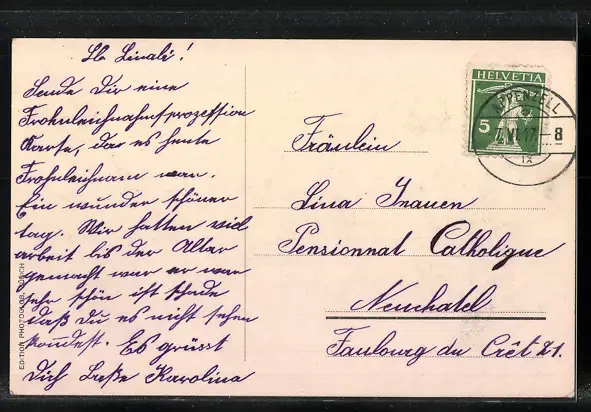 Lb Linali!
Sende Dir eine
Frohnleichnahmsprozession
Karte, dar es heute
Frohnleichnam war.
Ein wunder schöner
tag. Wir hatten viel
arbeit bis der Altar
gemacht war er war
sehr schön ist schade
daß du es nicht sehen
kondest. Es grüsst
Dich Karolina
EDITION PHOTOGLOB, ZÜRICH
HELVETIA
5
APPENZELL
7.VI.17-8
IX
Fräulein
Lina Inauen
Pensionnat Catholique
Neuchatel
Faubourg du Crêt 21.